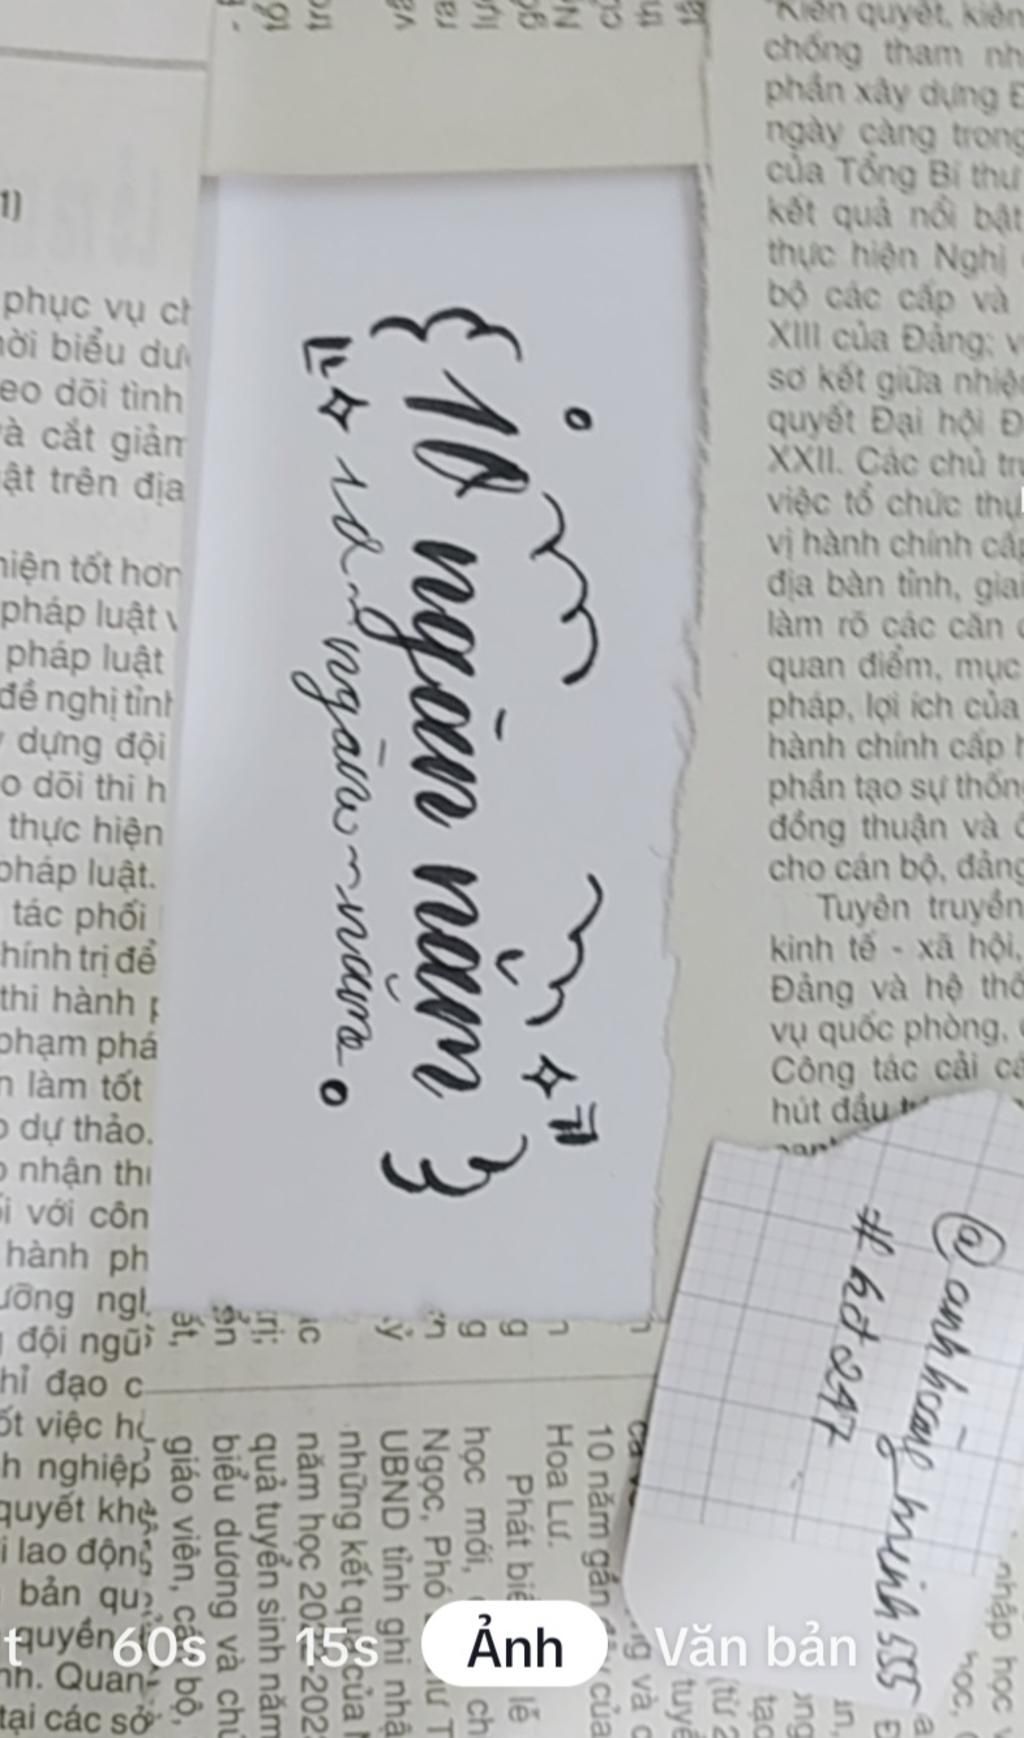 10 ngàn năm
10 ngàn năm
@anhhoàng_minh555
#hst247
1)
phục vụ ch
ời biểu dươ
eo dõi tình
à cắt giảm
ật trên địa
hiện tốt hơn
pháp luật v
pháp luật
đề nghị tỉnh
dựng đội
o dõi thi h
thực hiện
pháp luật.
tác phối
hính trị để
thi hành p
phạm phá
n làm tốt
dự thảo.
nhận thứ
ối với côn
hành ph
ưỡng ngh
đội ngũ
hỉ đạo c
ốt việc họ
h nghiệp
quyết khó
i lao động
bản qu
quyền
nh. Quan
tại các sở
"Kiên quyết, kiên
chống tham nh
phần xây dựng Đ
ngày càng trong
của Tổng Bí thư
kết quả nổi bật
thực hiện Nghị
bộ các cấp và
XIII của Đảng; v
sơ kết giữa nhiệ
quyết Đại hội Đ
XXII. Các chủ trư
việc tổ chức thự
vị hành chính cấp
địa bàn tỉnh, giai
làm rõ các căn c
quan điểm, mục
pháp, lợi ích của
hành chính cấp h
phần tạo sự thốn
đồng thuận và
cho cán bộ, đảng
Tuyên truyền
kinh tế - xã hội,
Đảng và hệ thố
vụ quốc phòng,
Công tác cải cá
hút đầu
10 năm gần
Hoa Lư.
Phát biể
học mới,
Ngọc, Phó
UBND tỉnh ghi nhậ
những kết quả của
năm học 20
quả tuyển sinh năm
biểu dương và chú
giáo viên, cá bộ,
60s 15s Ảnh Văn bản